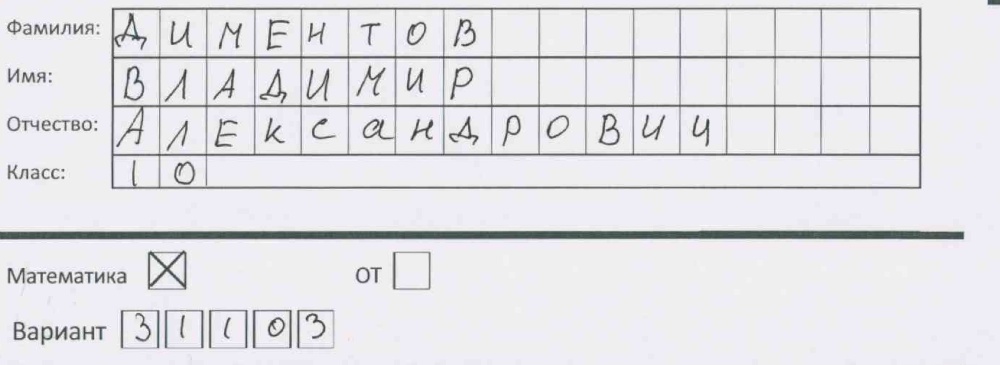 Фамилия: ДИМЕНТОВ
Имя: ВЛАДИМИР
Отчество: АЛЕКСАНДРОВИЧ
Класс: 10
Математика ☒ ОТ ☐
Вариант 31103